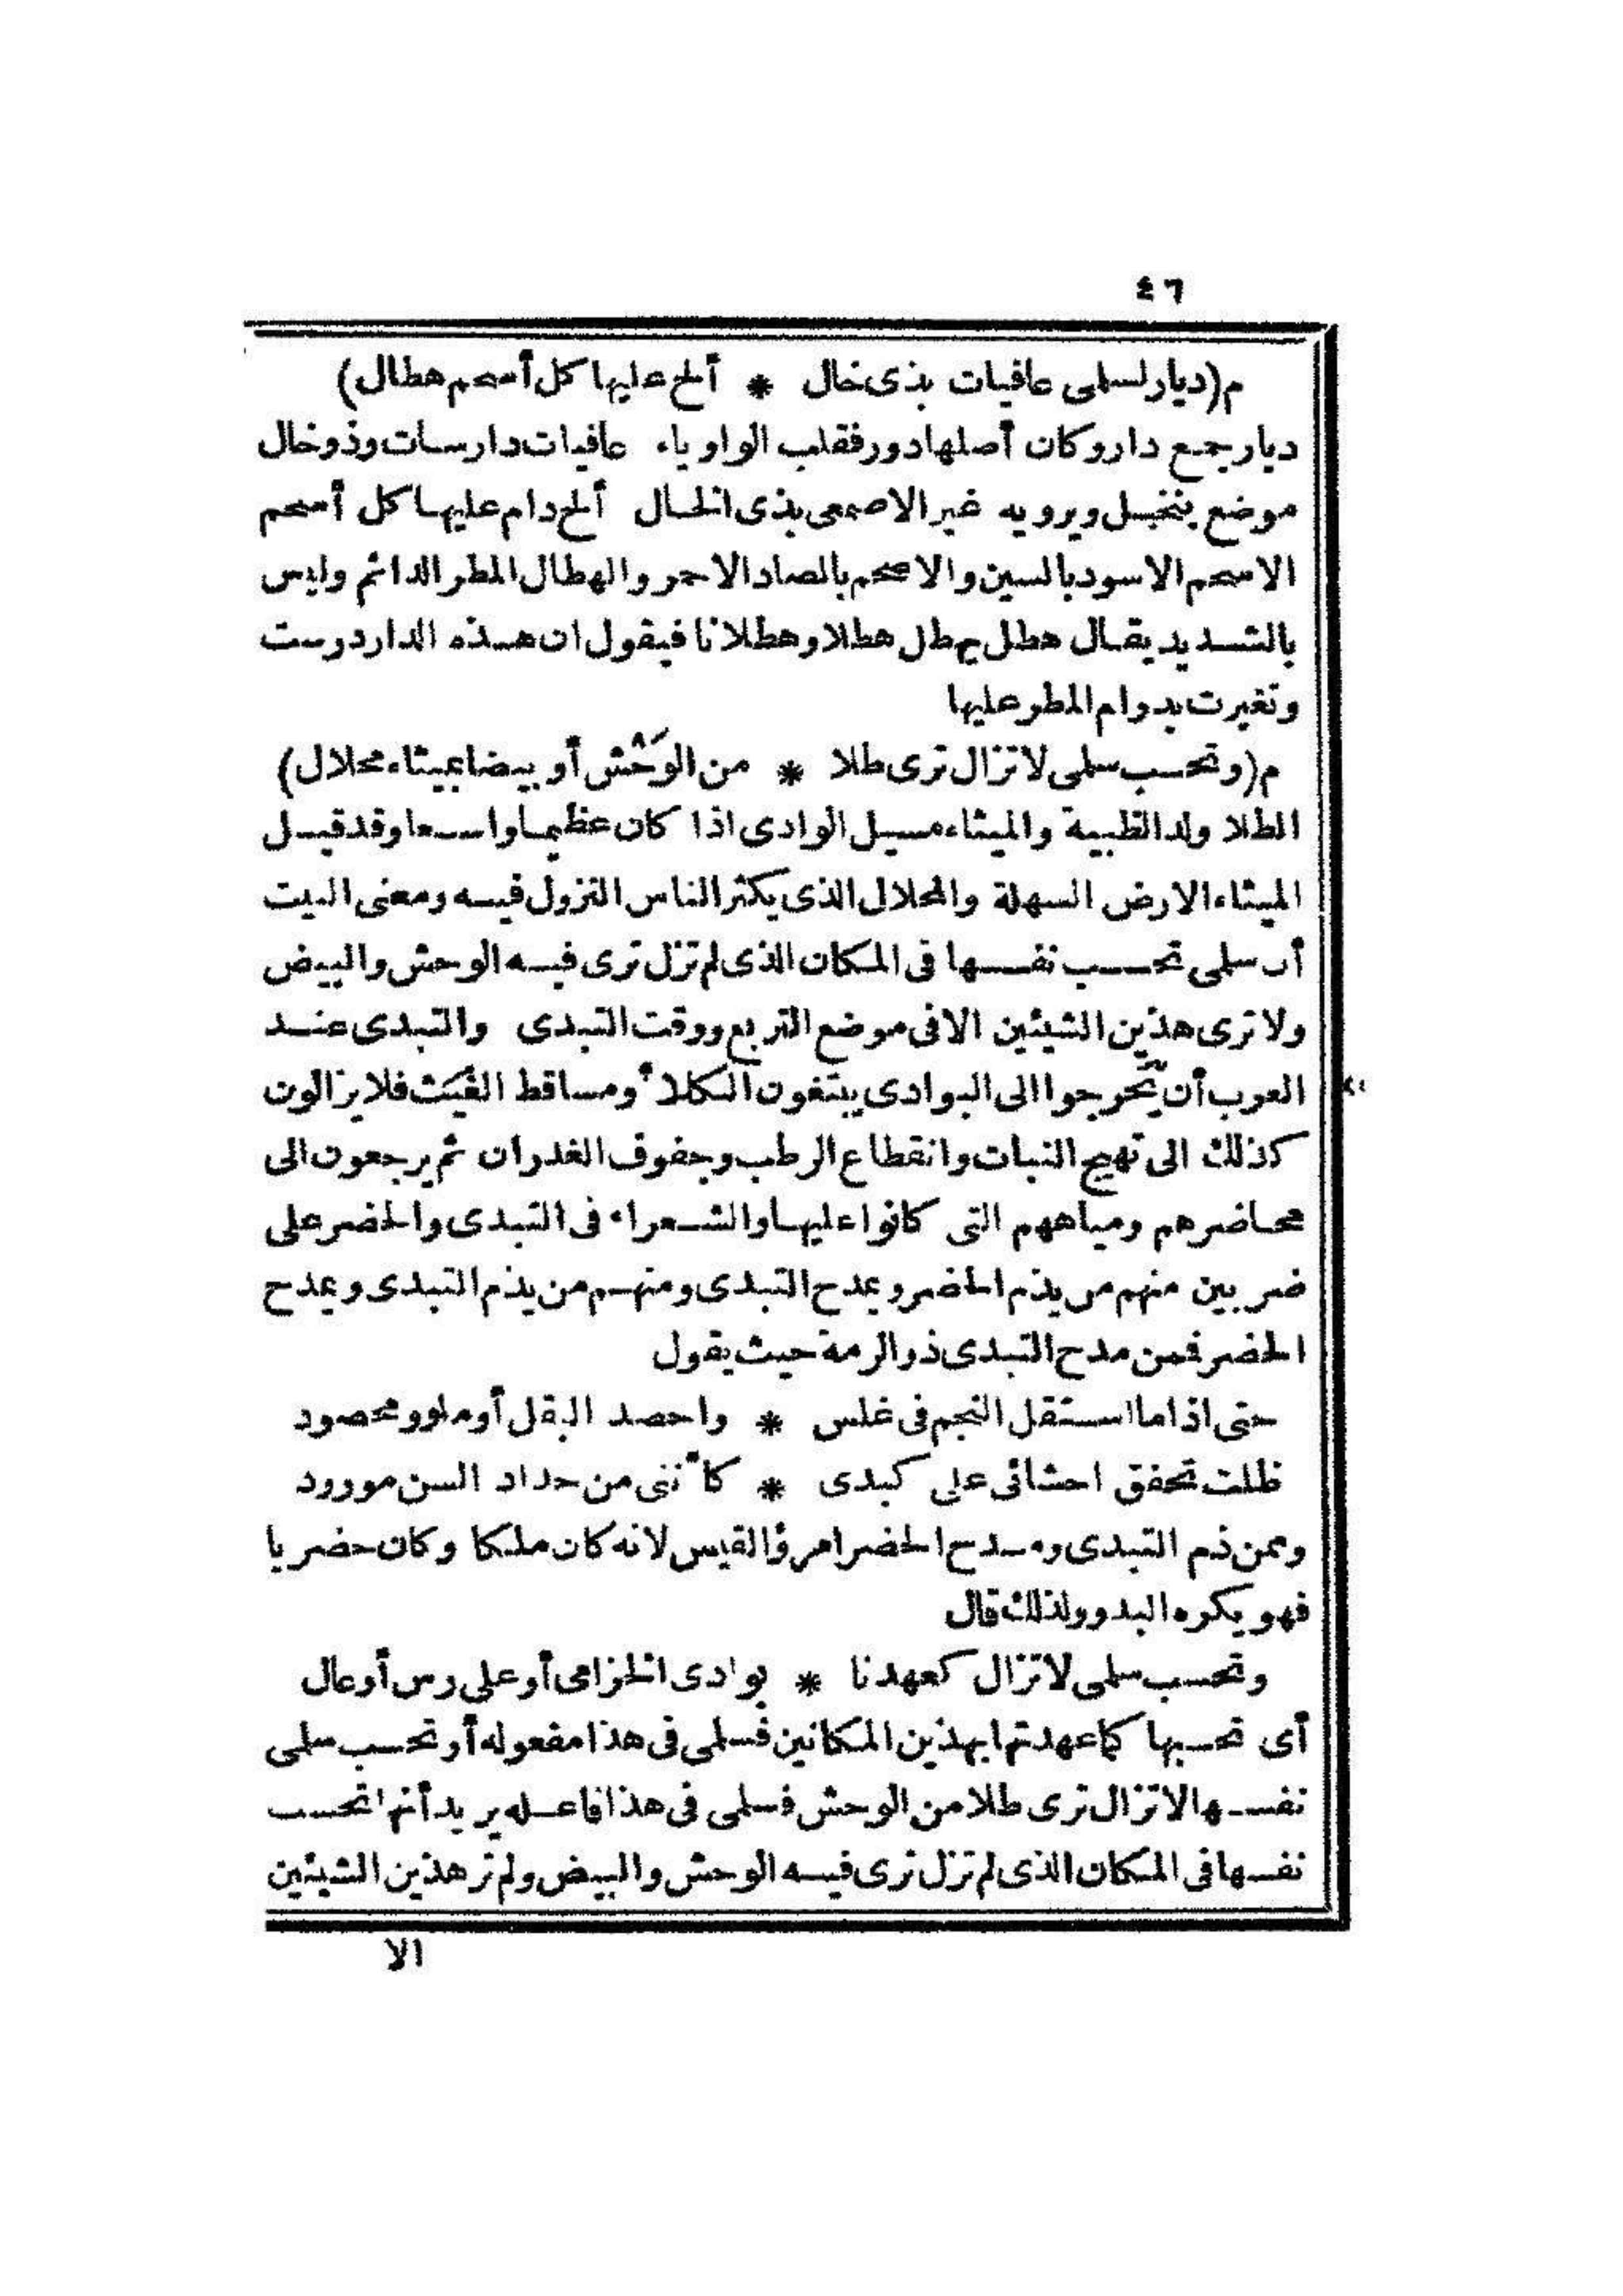 ٤٦
م(ديار لسلمى عافيات بذى خال * ألح عليها كل أسحم هطال)
ديار جمع دار وكان أصلها دور فقلب الواو ياء عافيات دارسات وذو خال
موضع بنجبل ويرويه غير الاصمعى بذى الخال ألح دام عليها كل أسحم
الاسحم الاسود بالسين والاصحم بالصاد الاحمر والهطال المطر الدائم وليس
بالشديد يقال هطل يهطل هطلا وهطلانا فيقول ان هذه الدار درست
وتغيرت بدوام المطر عليها
م(وتحسب سلمى لا تزال ترى طلا * من الوَحْش أو بيضا بميثاء محلال)
الطلا ولد الظبية والميثاء مسيل الوادى اذا كان عظيما واسعا وقد قيل
الميثاء الارض السهلة والمحلال الذى يكثر الناس النزول فيه ومعنى البيت
أن سلمى تحسب نفسها فى المكان الذى لم تزل ترى فيه الوحش والبيض
ولا ترى هذين الشيئين الا فى موضع التربع ووقت التبدى والتبدى عند
العرب أن يخرجوا الى البوادى يبتغون الكلأ ومساقط الغَيث فلا يزالون
كذلك الى تهيج النبات وانقطاع الرطب وجفوف الغدران ثم يرجعون الى
محاضرهم ومياههم التى كانوا عليها والشعراء فى التبدى والحضر على
ضربين منهم من يذم الحضر ويمدح التبدى ومنهم من يذم التبدى ويمدح
الحضر فمن مدح التبدى ذو الرمة حيث يقول
حتى اذا ما استقل النجم فى غلس * واحصد البقل أو ملوو محصود
ظلت تخفق احشائى على كبدى * كأننى من حداد السن مورود
وممن ذم التبدى ومدح الحضر امرؤ القيس لانه كان ملكا وكان حضريا
فهو يكره البدو ولذلك قال
وتحسب سلمى لا تزال كعهدنا * بوادى الخزامى أو على رس أوعال
أى تحسبها كما عهدتها بهذين المكانين فسلمى فى هذا مفعوله أو تحسب سلمى
نفسها لا تزال ترى طلا من الوحش فسلمى فى هذا فاعله يريد أنها تحسب
نفسها فى المكان الذى لم تزل ترى فيه الوحش والبيض ولم تر هذين الشيئين
الا